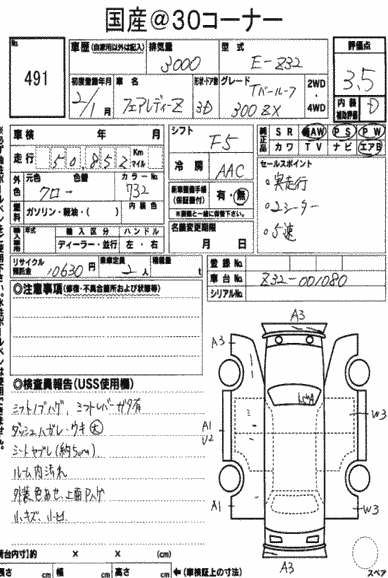 国産@30コーナー
No.
491
車歴(自家用以外は記入)
排気量
3000
型式
E-Z32
評価点
3.5
初度登録年月
2/1月
車名
フェアレディーZ
形状・ドア数
3D
グレード
Tバールーフ
300ZX
2WD
・
4WD
内装
補助評価
D
車検 年 月
シフト
F5
純正品
SR AW PS PW
カワ TV ナビ エアB
走行
50852
Km
マイル
冷房
AAC
セールスポイント
○実走行
○2シーター
○5速
外色
元色 色替
クロ→
カラーNo.
732
新車整備手帳
(保証書付)
有・無
※書類と一緒に保管下さい。
燃料
ガソリン・軽油・( )
内装色
輸入車
所
輸入区分 ハンドル
ディーラー・並行 左・右
名義変更期限
月 日
リサイクル
預託金
10630円
乗車定員
2人
積載量
t
登録No.
車台No.
Z32-001080
シリアルNo.
◎注意事項(修復・不具合箇所および状態等)
◎検査員報告(USS使用欄)
シフトノブハゲ、シフトレバーガタ有
ダッシュハガレ・ウキ大
シートヤブレ(約5cm)
ルーム内汚れ
外装色あせ、上面Pハゲ
小キズ、小凹
A3
A3
A1
U2
A1
W3
W3
A3
スペア
(荷台内寸)約 × × (cm)
長さ cm 幅 cm 高さ cm ←(車検証上の寸法)